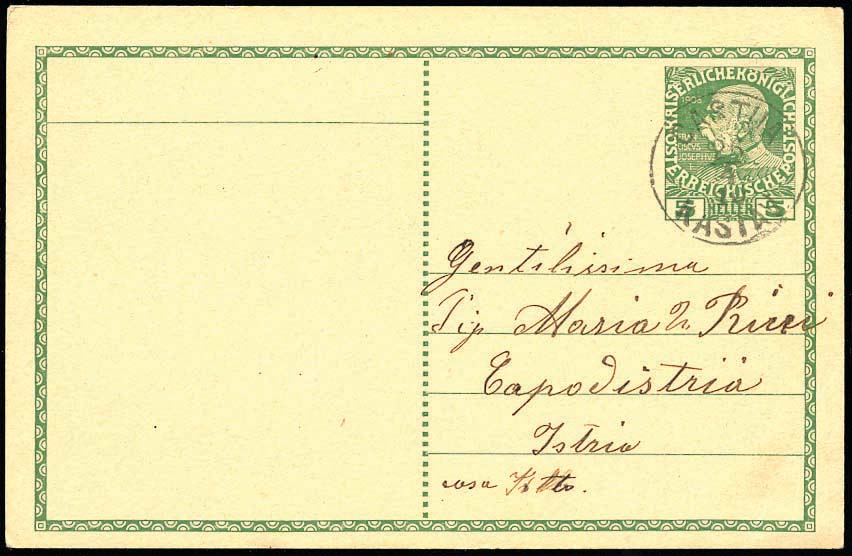 KAISERLICHE KÖNIGLICHE
ÖSTERREICHISCHE POST
1908
JOSEPHVS
5 HELLER 5
KASTAV
Gentilissima
Sig Maria Ricci
Capodistria
Istria
casa